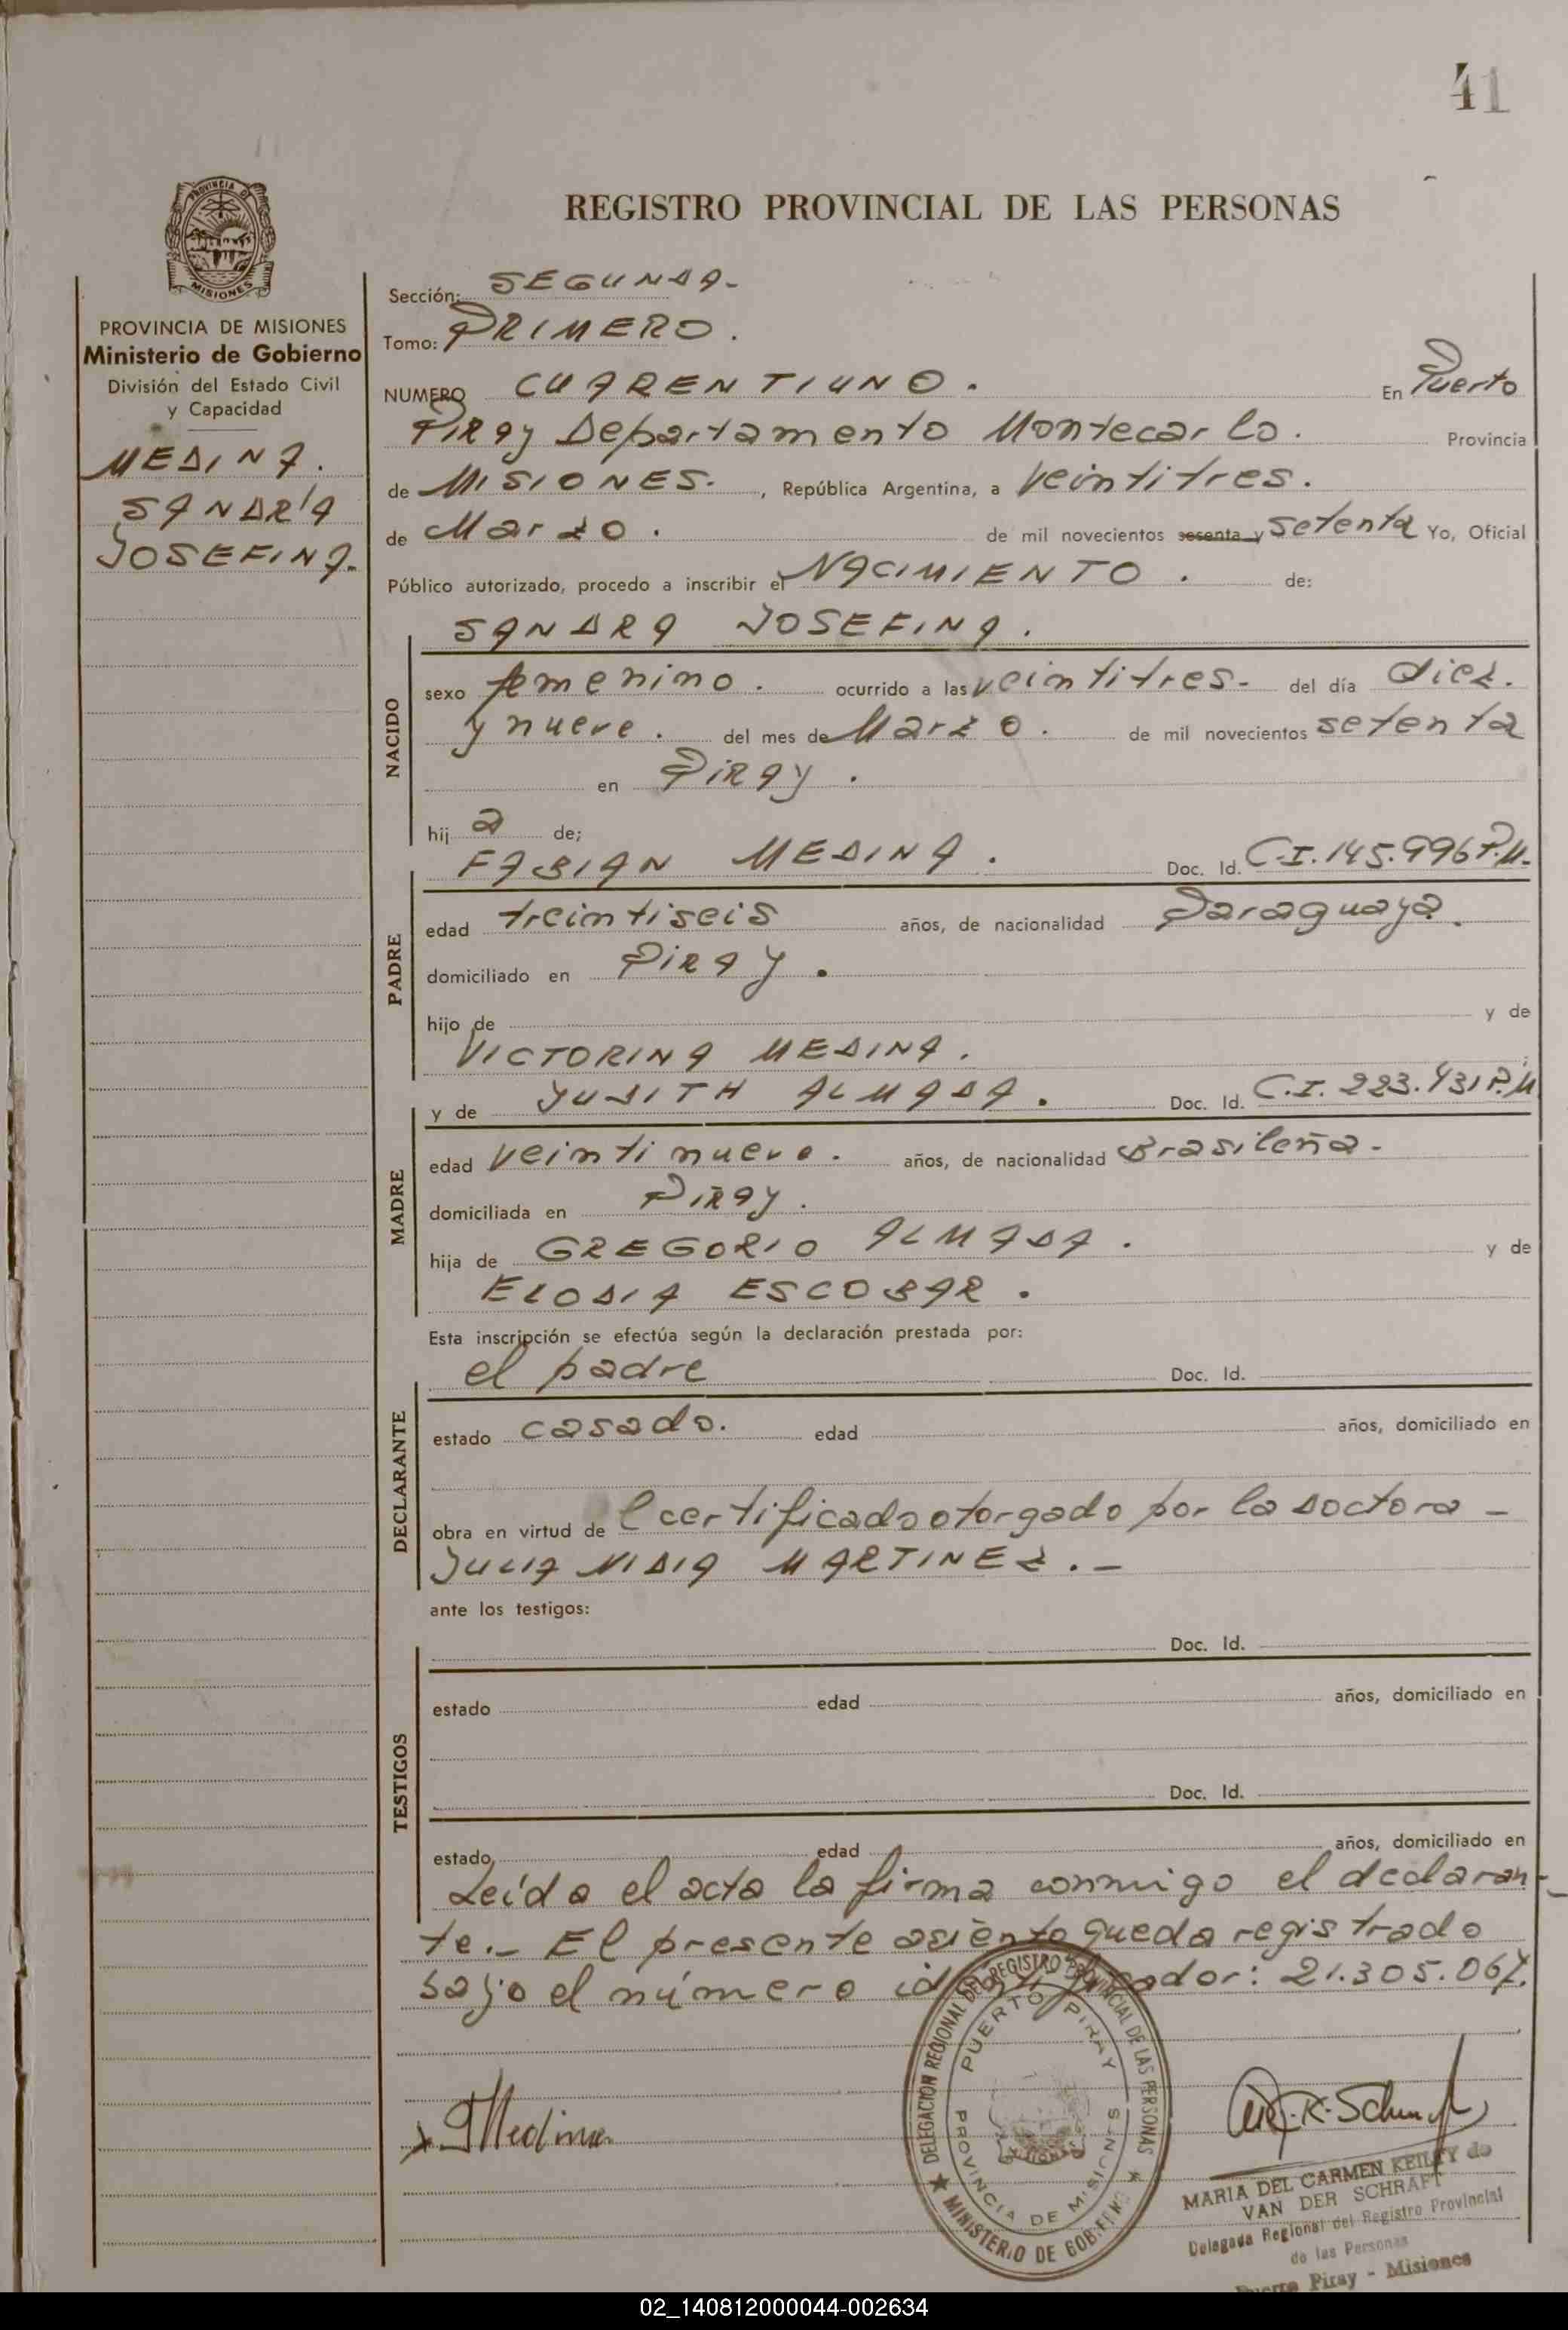 41
REGISTRO PROVINCIAL DE LAS PERSONAS
PROVINCIA DE MISIONES
Ministerio de Gobierno
División del Estado Civil
y Capacidad
MEDINA.
SANDRA
JOSEFINA.
Sección: SEGUNDA-
Tomo: PRIMERO.
NUMERO CUARENTIUNO. En Puerto
PIRAy Departamento Montecarlo. Provincia
de MISIONES. , República Argentina, a veintitres.
de Marzo. de mil novecientos sesenta y setenta Yo, Oficial
Público autorizado, procedo a inscribir el NACIMIENTO. de:
SANDRA JOSEFINA.
NACIDO
sexo femenino. ocurrido a las veintitres- del día diez.
y nueve. del mes de Marzo. de mil novecientos setenta
en PIRAy.
hij a de;
FABIAN MEDINA. Doc. Id. C.I.145.996P.M.
PADRE
edad treintiseis años, de nacionalidad Paraguaya.
domiciliado en PIRAy.
hijo de y de
VICTORINA MEDINA.
y de JUDITH ALMADA. Doc. Id. C.I. 223.431P.M
MADRE
edad veintinueve. años, de nacionalidad Brasileña-
domiciliada en PIRAy.
hija de GREGORIO ALMADA. y de
ELODIA ESCOBAR.
Esta inscripción se efectúa según la declaración prestada por:
el padre Doc. Id.
DECLARANTE
estado casado. edad años, domiciliado en
obra en virtud de l certificado otorgado por la Doctora -
JULIA NIDIA MARTINEZ.-
ante los testigos:
TESTIGOS
Doc. Id.
estado edad años, domiciliado en
Doc. Id.
estado edad años, domiciliado en
Leída el acta la firma conmigo el declaran-
te.- El presente asiento queda registrado
bajo el número identificador: 21.305.067.
Medina
DELEGACION REGIONAL DEL REGISTRO PROVINCIAL DE LAS PERSONAS
PUERTO PIRAY
PROVINCIA DE MISIONES
MINISTERIO DE GOBIERNO
MARIA DEL CARMEN KEILTY de
VAN DER SCHRAFT
Delegada Regional del Registro Provincial
de las Personas
Puerto Piray - Misiones
02_140812000044-002634